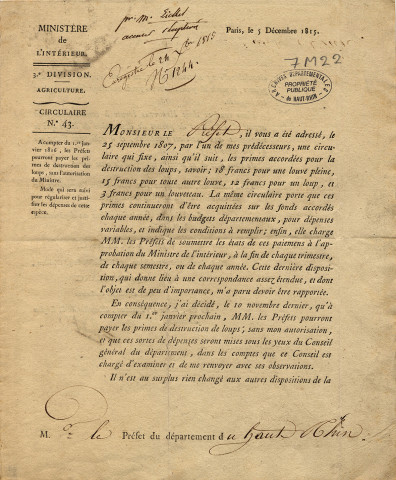 MINISTÈRE
de
L'INTÉRIEUR.
3.e DIVISION.
AGRICULTURE.
CIRCULAIRE
N.° 43.
A compter du 1.er janvier 1816, les Préfets
pourront payer les primes
de destruction des
loups, sans l'autorisation
du Ministre.
Mode qui sera suivi
pour régulariser et justifier
les dépenses de cette
espèce.
pr. M.
accuser réception
Enregistré le 24 Xbre 1815
N° 1244
Paris, le 5 Décembre 1815.
7M22
ARCHIVES DÉPARTEMENTALES
PROPRIÉTÉ
PUBLIQUE
du HAUT-RHIN
MONSIEUR LE Préfet, il vous a été adressé, le
25 septembre 1807, par l'un de mes prédécesseurs, une circulaire
qui fixe, ainsi qu'il suit, les primes accordées pour la
destruction des loups, savoir; 18 francs pour une louve pleine,
15 francs pour toute autre louve, 12 francs pour un loup, et
3 francs pour un louveteau. La même circulaire porte que ces
primes continueront d'être acquittées sur les fonds accordés
chaque année, dans les budgets départementaux, pour dépenses
variables, et indique les conditions à remplir; enfin, elle charge
MM. les Préfets de soumettre les états de ces paiemens à l'approbation
du Ministre de l'intérieur, à la fin de chaque trimestre,
de chaque semestre, ou de chaque année. Cette dernière disposition,
qui donne lieu à une correspondance assez étendue, et dont
l'objet est de peu d'importance, m'a paru devoir être rapportée.
En conséquence, j'ai décidé, le 10 novembre dernier, qu'à
compter du 1.er janvier prochain, MM. les Préfets pourront
payer les primes de destruction de loups, sans mon autorisation,
et que ces sortes de dépenses seront mises sous les yeux du Conseil
général du département, dans les comptes que ce Conseil est
chargé d'examiner et de me renvoyer avec ses observations.
Il n'est au surplus rien changé aux autres dispositions de la
M. le Préfet du département du haut Rhin